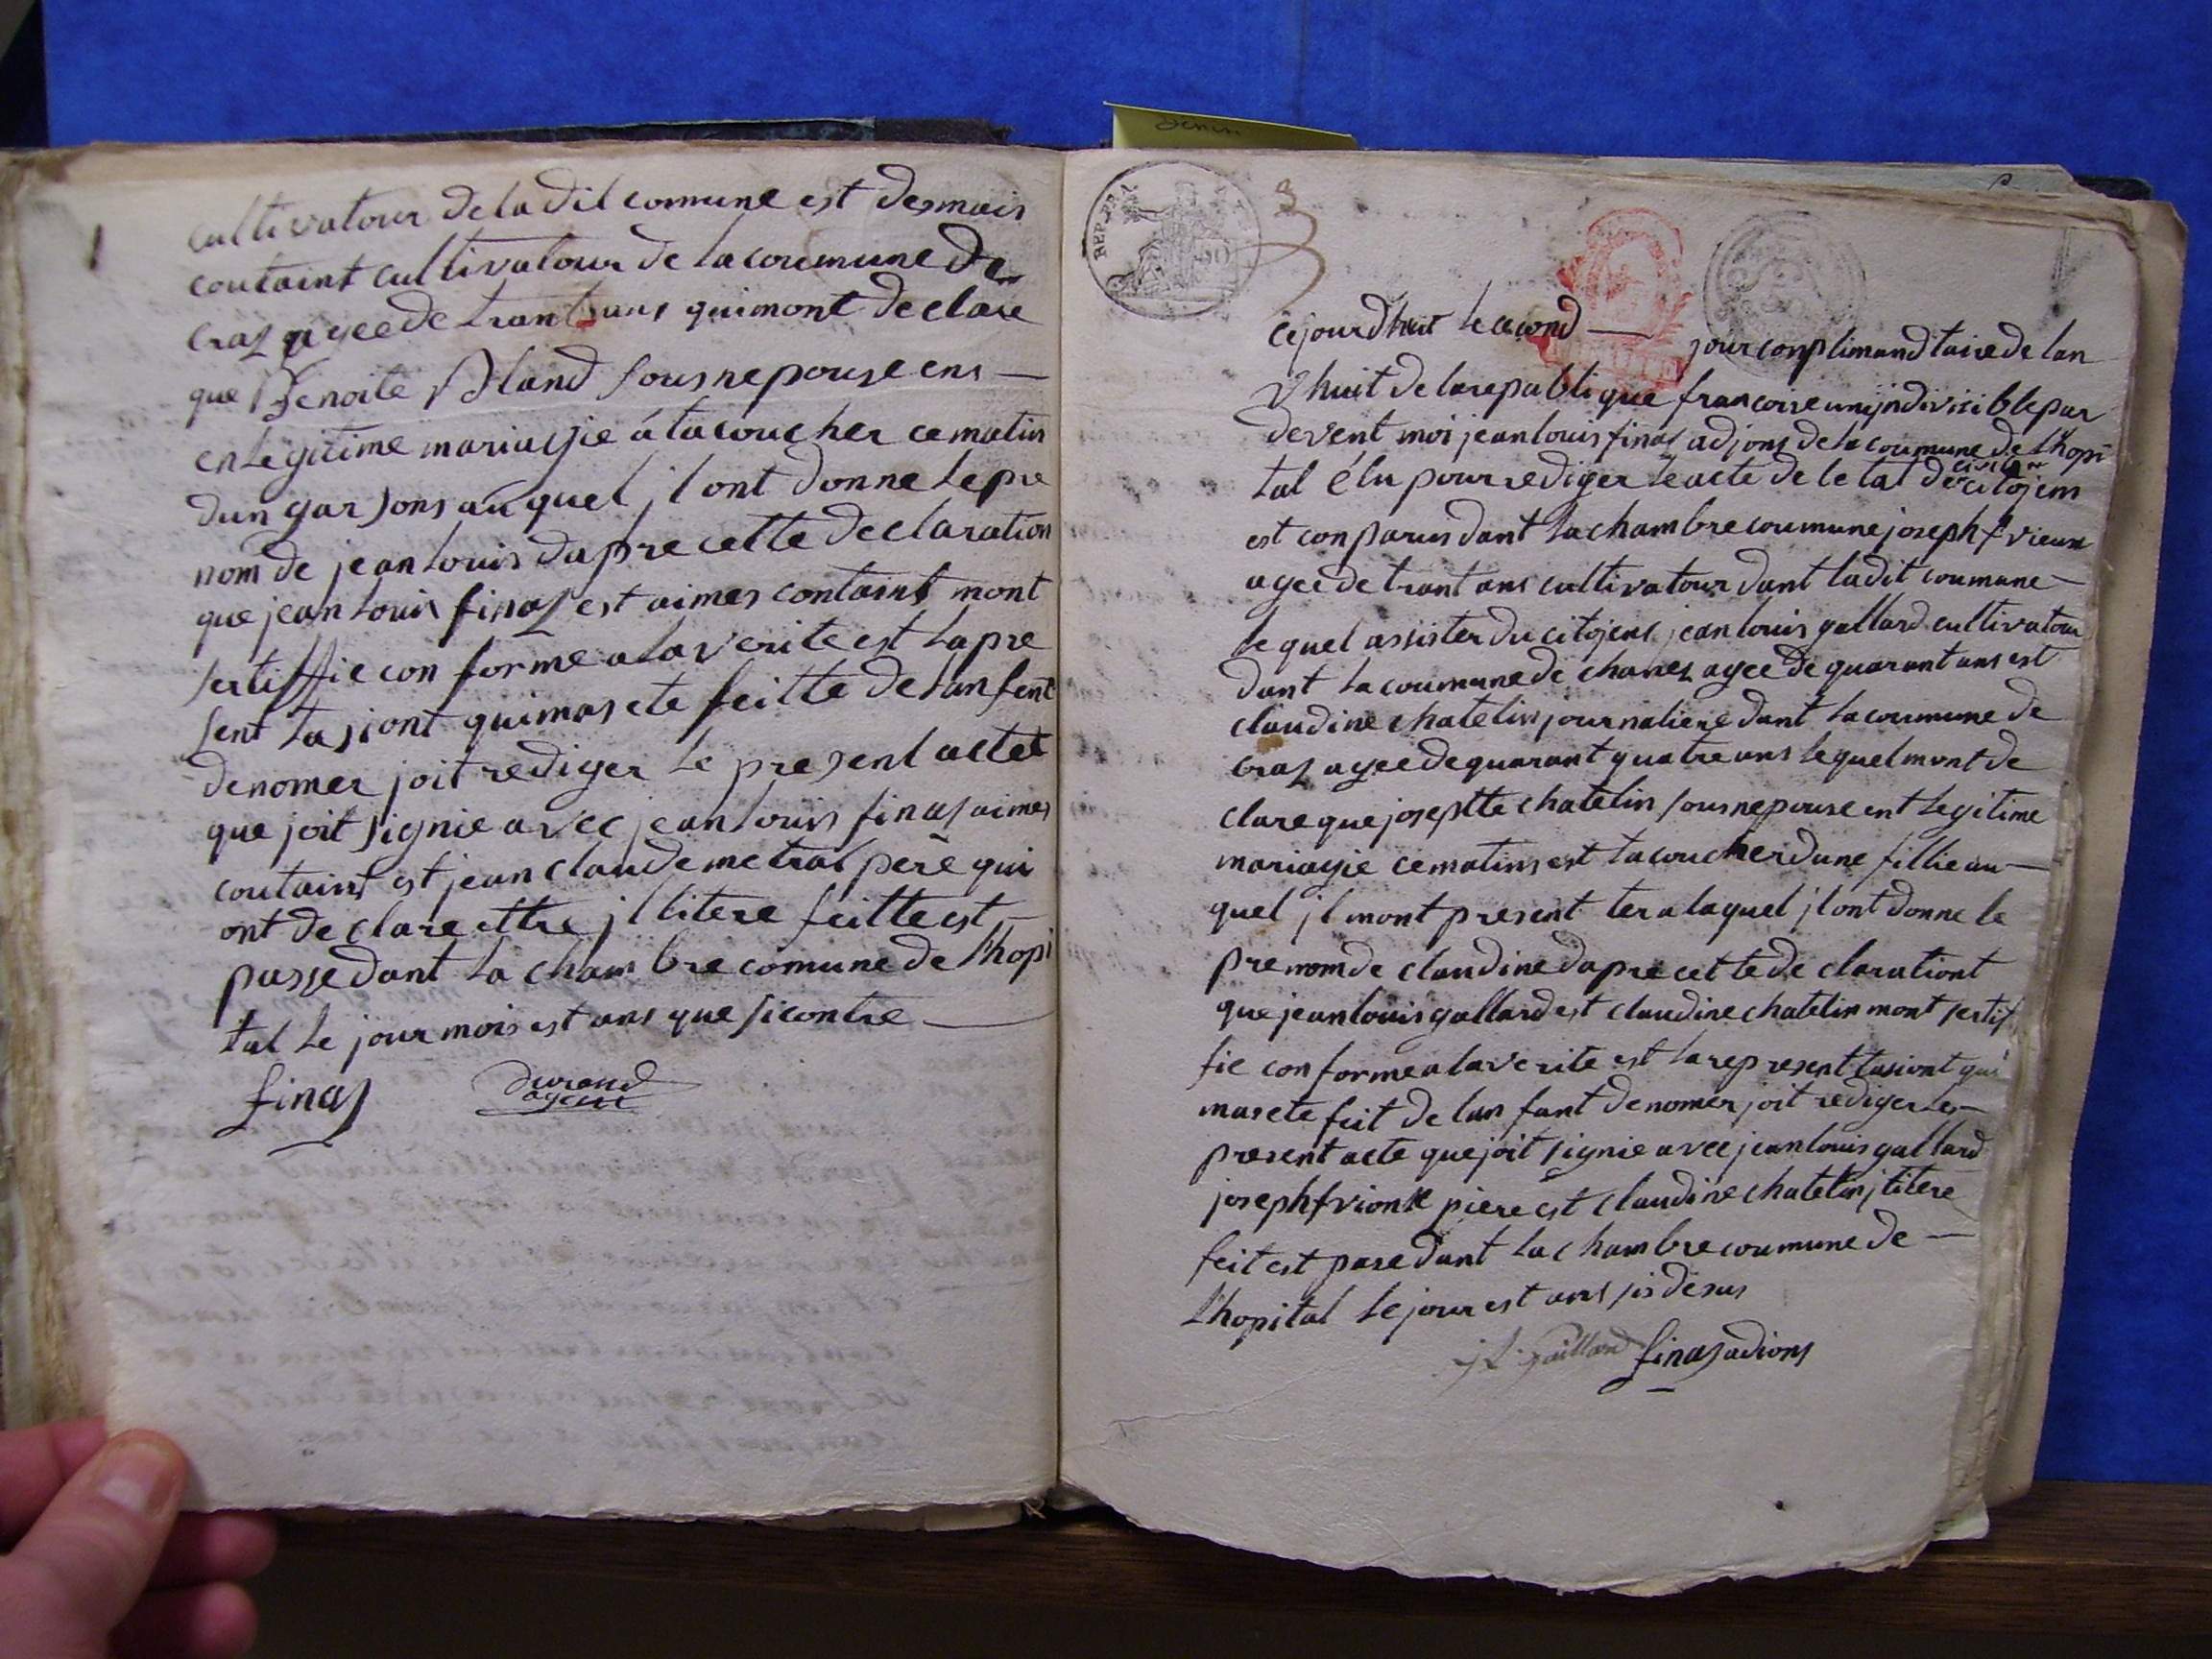 cultivatour de la dit comune est desmais
coutaint cultivatour de la coumune de
Craz agee de trant ans qui mont declare
que Benoite Bland sous nepouse ens —
en legitime mariagie á tacoucher ce matin
dun garsons au quel jl ont donne le pre
nom de jean Louis dapre cette declaration
que jean Louis finas est aimes containt mont
sertiffie con forme a la verite est la pre
sent tasiont qui mas ete feitte de lanfent
denomer joit rediger le present actet
que joit signie avec jean Louis finas aimes
coutaint est jean claude metral père qui
ont declare ettre jllitere feitte est
passe dant la cham bre comune de Lhopi
tal le jour mois est ans que sicontre —
finas
Durand
agent
REP. FRA
3
ce jourdhuit lecond — jour conplimandtaire de lan
huit de la republique francoise unijndivisible par
devent moi jean louis finas adjons de la coumune de Lhopi
tal élu pour rediger le acte de le tat civile de citojens
est conparus dant la chambre coumune joseph frieux
agee de trant ans cultivatour dant ladit coumune —
le quel assister du citojens jean louis gallard cultivatour
dant la coumune de chanes agee de quarant ans est
claudine chatelin journaliere dant la coumune de
Craz agee de quarant quatre ans lequel mont de
clare que josephtte chatelin sous nepouse ent legitime
mariagie ce matins est tacoucher dune fillie au —
quel jl mont present ter a laquel jl ont donne le
prenom de claudine dapre cette de claration
que jean louis gallard est claudine chatelin mont sertif
fie con forme a la verite est la represent tasiont qui
mas ete feit de lan fant denomer joit rediger le —
present acte que joit signie avec jean louis gallard
joseph frionx piere est claudine chatelin jlitere
feit est pase dant la chambre coumune de —
Lhopital le jour est ans sis desus
j L gaillard finas adions